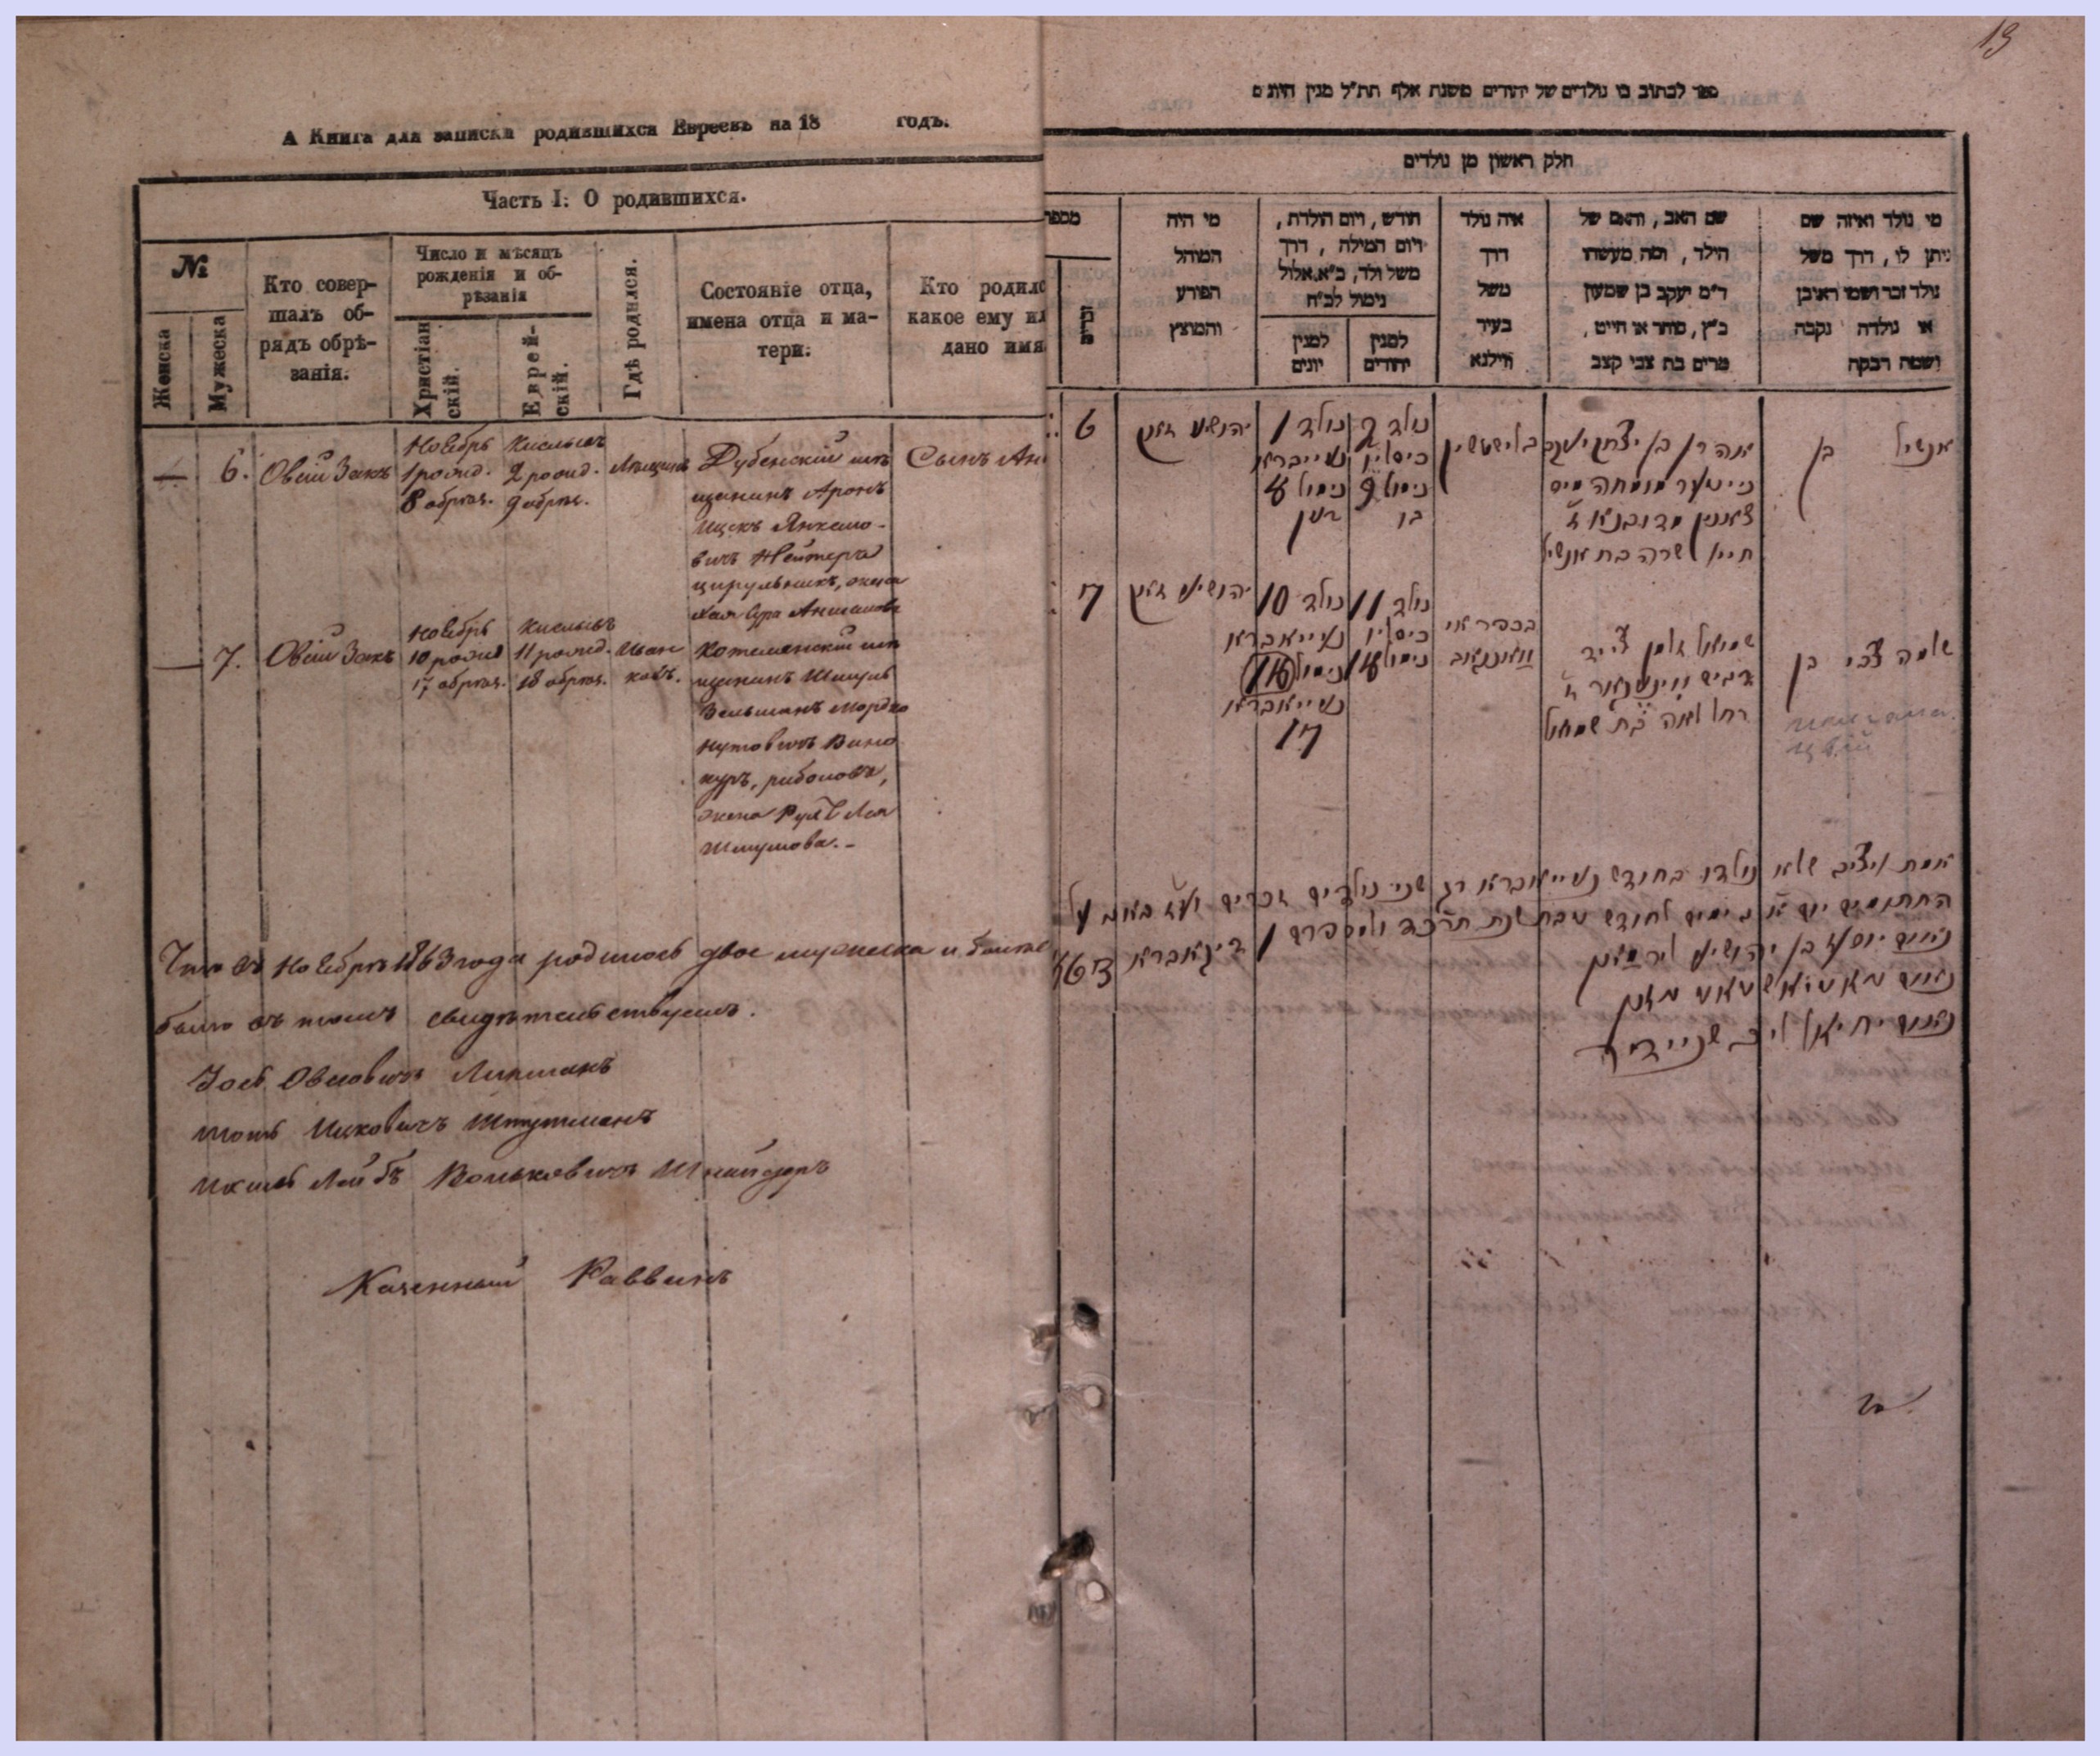 А Книга для записки родившихся Евреевъ на 18 годъ.
Часть I: О родившихся.
№
Женска
Мужеска
Кто совер-
шалъ об-
рядъ обрѣ-
занія.
Число и мѣсяцъ
рожденія и об-
рѣзанія
Христіан
скій.
Еврей-
скій.
Гдѣ родился.
Состояніе отца,
имена отца и ма-
тери:
Кто родилс
какое ему ил
дано имя
6.
Овсій Закъ
Ноебрь
1 рожд.
8 обрѣз.
Кислывъ
2 рожд.
9 обрѣз.
Дубенскій мѣ
щанинъ Аронъ
Ицекъ Янкелю-
вичъ Нейтеръ
цирульникъ, жена
Хая Сура Аншелова
Сынъ Ан
7.
Овсій Закъ
Ноебрь
10 рожд
17 обрѣз.
Кислывъ
11 рожд.
18 обрѣз.
Иван
ковъ.
мѣ
щанинъ Шмуль
Зельманъ Мордко
Винo
куръ,
жена Рухля Лея
Шмулова.-
Что въ Ноебрѣ 1863 года родилось двое мужеска и болѣе
было въ томъ свидѣтельствуемъ.
Іось Овсіовичъ Липманъ
Мотъ Ицковичъ Штутманъ
Икиль Лейбъ Вольковичъ Шнайдеръ
Казенный Раввинъ
13
ספר לכתוב בו נולדים של יהודים משנת אלף תת״ל מנין היונים
חלק ראשון מן נולדים
מספר
זכרים
מי היה
המוהל
הפורע
והמוצץ
חודש, ויום הולדת,
ויום המילה, דרך
משל ולד, כ״א אלול
נימול לב״ח
למנין
יונים
למנין
יהודים
איה נולד
דרך
משל
בעיר
ווילנא
שם האב, והאם של
הילד, ומה מעשהו
ר״מ יעקב בן שמעון
כ״ץ, סוחר או חייט,
מרים בת צבי קצב
מי נולד ואיזה שם
ניתן לו, דרך משל
נולד זכר ושמו ראובן
או נולדה נקבה
ושמה רבקה
6
יהושיע זאק
נולד 1
נאייבראו
נימול 8
נולד 2
כיסליו
נימול 9
בו
אהרן בן יצחק יעקב
חייא שרה בת אנשיל
אנשיל בן
7
יהושיע זאק
נולד 10
נאייאבראו
נימול
נאייאבראו
17
נולד 11
כיסליו
נימול 18
בכפר איי
וואנקאוב
שמואל זלמן
רחל לאה בת שמואל
שלמה צבי בן
אמת ויציב שלא נולדו בחודש נאייאבראו רק שני נולדים זכרים ועז באנו על
החתום יום א ב ימים לחודש טבת שנת תרכד ולמספרם 1 דיקאבראו 1863
נאום יוסף בן יהושיע ליפמאן
נאום יחיאל ליב שניידער